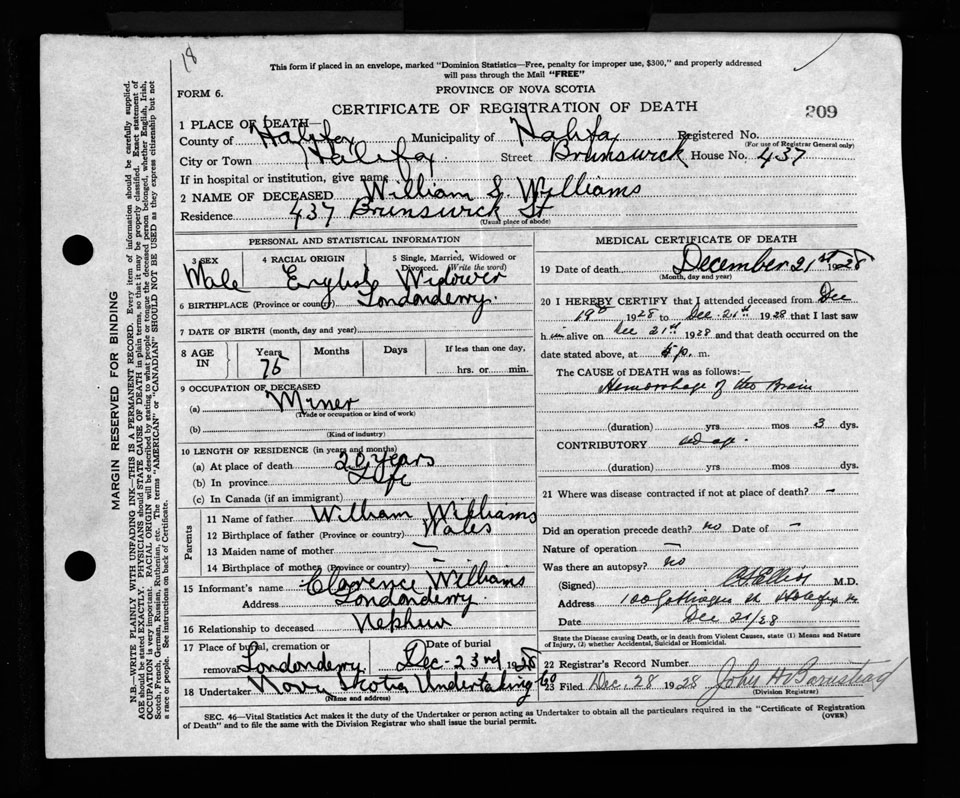 18
This form if placed in an envelope, marked "Dominion Statistics—Free, penalty for improper use, $300," and properly addressed
will pass through the Mail "FREE"
FORM 6.
PROVINCE OF NOVA SCOTIA
CERTIFICATE OF REGISTRATION OF DEATH
209
1 PLACE OF DEATH—
County of Halifax Municipality of Halifax Registered No.
(For use of Registrar General only)
City or Town Halifax Street Brunswick House No. 437
If in hospital or institution, give name
2 NAME OF DECEASED William S. Williams
Residence 437 Brunswick St
(Usual place of abode)
PERSONAL AND STATISTICAL INFORMATION
3 SEX 4 RACIAL ORIGIN 5 Single, Married, Widowed or
Divorced. (Write the word)
Male English Widower
6 BIRTHPLACE (Province or country) Londonderry.
7 DATE OF BIRTH (month, day and year)
8 AGE IN Years Months Days If less than one day,
75 hrs. or min.
9 OCCUPATION OF DECEASED
(a) Miner
(Trade or occupation or kind of work)
(b)
(Kind of industry)
10 LENGTH OF RESIDENCE (in years and months)
(a) At place of death 20 years
(b) In province Life
(c) In Canada (if an immigrant)
Parents
11 Name of father William Williams
12 Birthplace of father (Province or country) Wales
13 Maiden name of mother —
14 Birthplace of mother (Province or country) —
15 Informant's name Clarence Williams
Address Londonderry.
16 Relationship to deceased Nephew
17 Place of burial, cremation or Date of burial
removal Londonderry Dec- 23rd 1928
18 Undertaker Nova Scotia Undertaking Co
(Name and address)
MEDICAL CERTIFICATE OF DEATH
19 Date of death December 21st 1928
(Month, day and year)
20 I HEREBY CERTIFY that I attended deceased from Dec
19th 1928 to Dec. 21st 1928 that I last saw
him alive on Dec 21st 1928 and that death occurred on the
date stated above, at 5 p. m.
The CAUSE of DEATH was as follows:—
Hemorrhage of the Brain
(duration) yrs mos 3 dys.
CONTRIBUTORY old age.
(duration) yrs. mos. dys.
21 Where was disease contracted if not at place of death? —
Did an operation precede death? no Date of —
Nature of operation —
Was there an autopsy? no
(Signed) M.D.
Address 100 Halifax
Date Dec 21/28
State the Disease causing Death, or in death from Violent Causes, state (1) Means and Nature
of Injury, (2) whether Accidental, Suicidal or Homicidal.
22 Registrar's Record Number
23 Filed Dec. 28 1928 John H Barnstead
(Division Registrar)
SEC. 46—Vital Statistics Act makes it the duty of the Undertaker or person acting as Undertaker to obtain all the particulars required in the "Certificate of Registration
of Death" and to file the same with the Division Registrar who shall issue the burial permit.
(OVER)
MARGIN RESERVED FOR BINDING
N.B.—WRITE PLAINLY WITH UNFADING INK—THIS IS A PERMANENT RECORD. Every item of information should be carefully supplied.
AGE should be stated EXACTLY. PHYSICIANS should STATE CAUSE OF DEATH in plain terms, so that it may be properly classified. Exact statement of
OCCUPATION is very important. RACIAL ORIGIN will be described by stating to what people or tongue the deceased person belonged, whether English, Irish,
Scotch, French, German, Russian, Ruthenian, etc. The terms "AMERICAN" or "CANADIAN" SHOULD NOT BE USED as they express citizenship but not
a race or people. See instructions on back of Certificate.